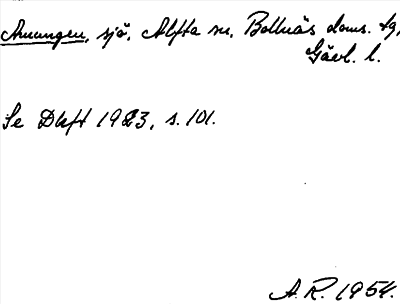 Amungen, sjö, Alfta sn, Bollnäs doms. tg,
Gävl. l.
Se DHft 1923, s. 101.
A. R. 1954.